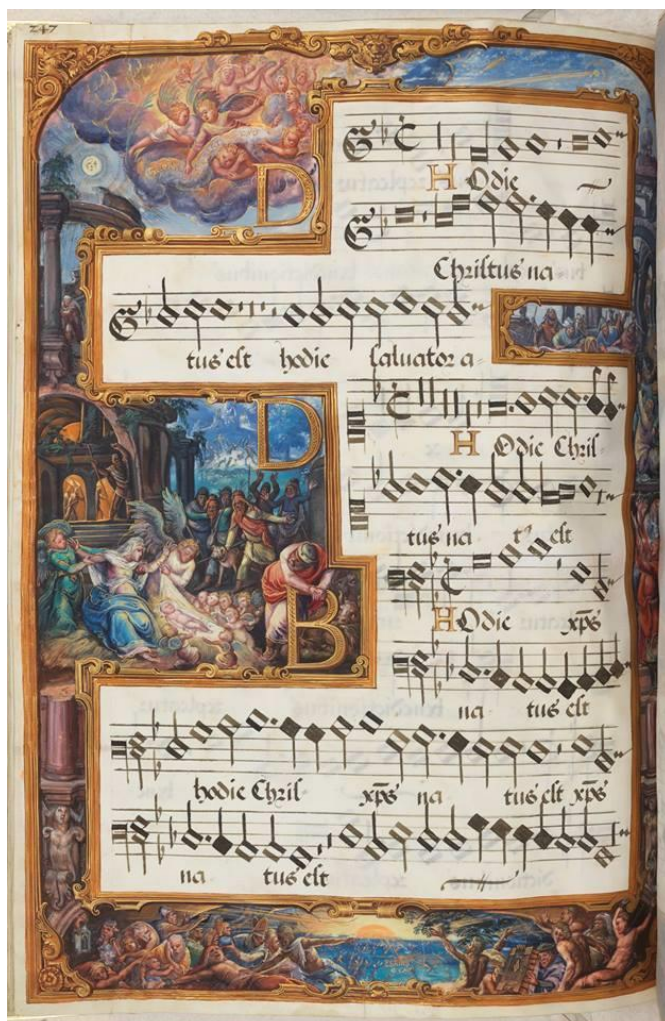 247
D
HOdie
Christus na
tus est hodie saluator a-
D
HOdie Chris
tus na t⁹ est
B
HOdie xp̄s
na tus est
hodie Chris xp̄s na tus est xp̄s
na tus est